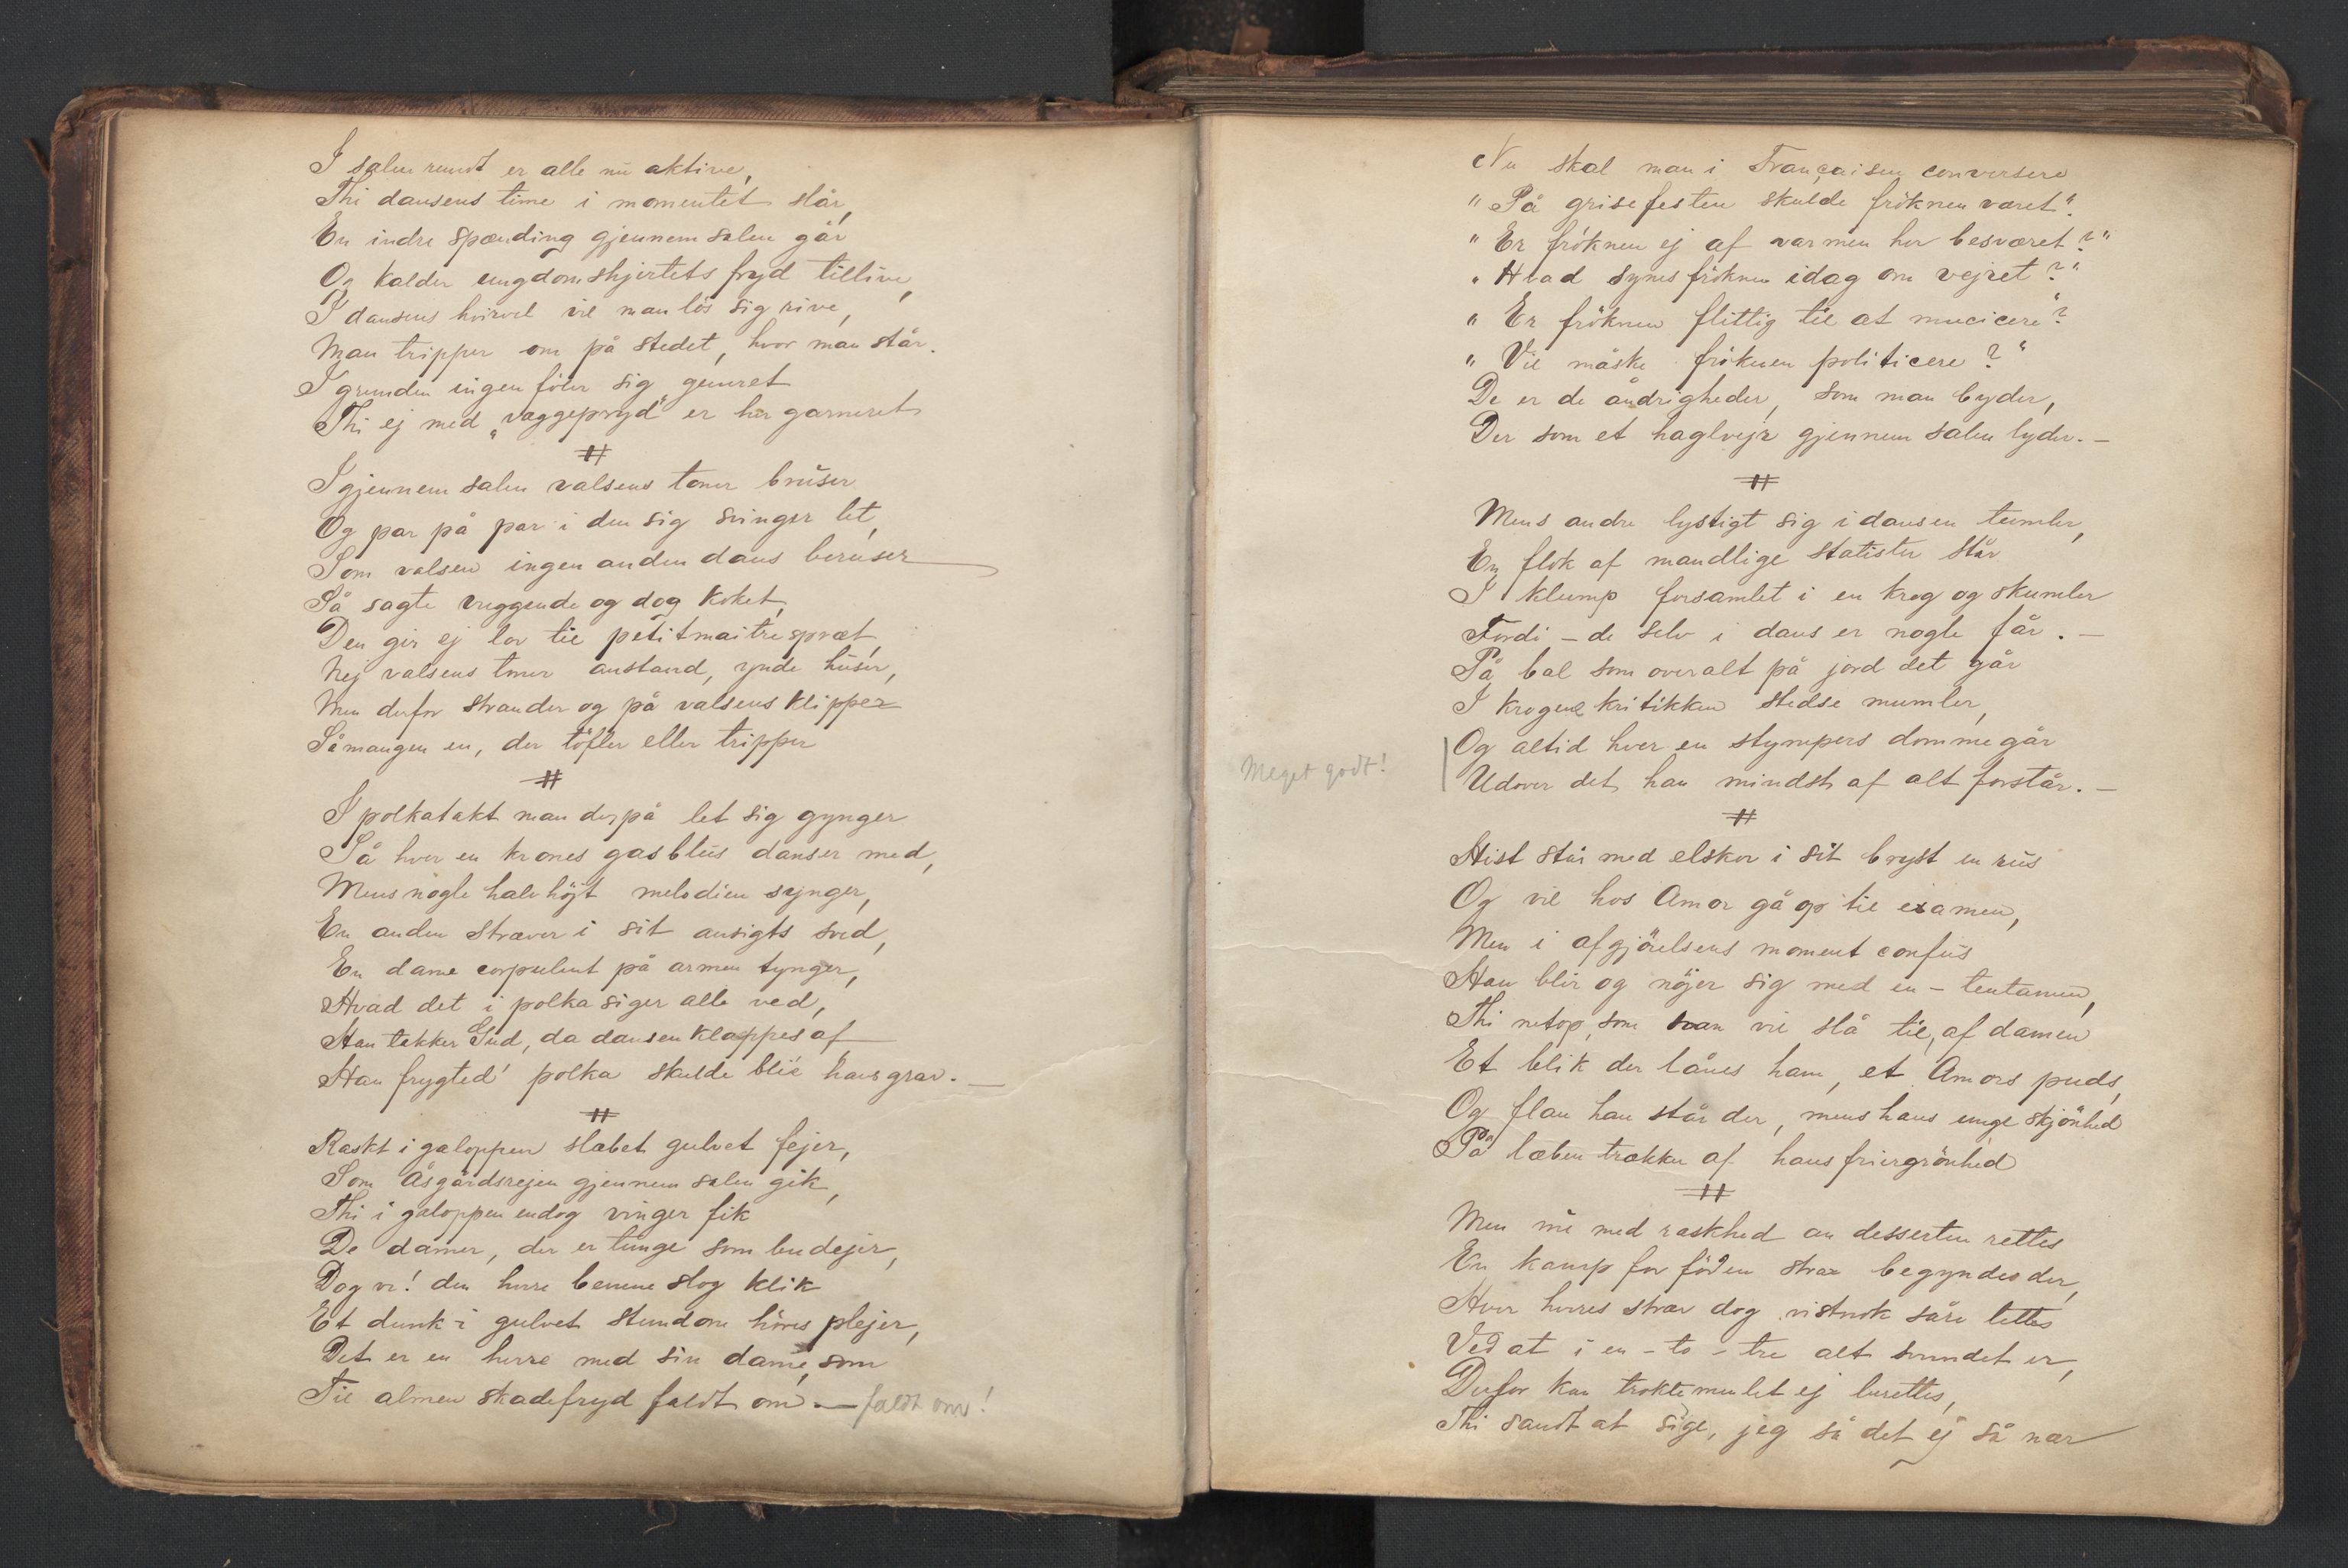 I salen rundt er alle nu aktive,
Thi dansens time i momentet slår,
En indre spænding gjennem salen går
Og kalder ungdomshjertets fryd tillive,
I dansens hvirvel vil man løs sig rive,
Man tripper om på stedet, hvor man står.
I grunden ingen föler sig generet
Thi ej med „væggepryd" er her garneret
#
Igjennem salen valsens toner bruser
Og par på par i den sig svinger let,
Som valsen ingen anden dans beruser
Så sagte vuggende og dog koket,
Den gir ej lov til petitmaitrespræt,
Nej valsens toner anstand, ynde huser,
Men derfor strander og på valsens klipper
Så mangen en, der töfler eller tripper
#
I polkatakt man derpå let sig gynger
Så hver en krones gasblus danser med,
Mens nogle halvhöjt melodien synger,
En anden stræver i sit ansigts sved,
En dame corpulent på armen tynger,
Hvad det i polka siger alle ved,
Han takker Gud, da dansen klappes af
Han frygted' polka skulde blie hans grav. —
#
Raskt i galoppen slæbet gulvet fejer,
Som Åsgårdsrejen gjennem salen gik,
Thi i galoppen endog vinger fik
De damer, der er tunge som budejer,
Dog ve! den herre benene slog klik
Et dunk i gulvet stundom höres plejer,
Det er en herre med sin dame, som
Til almen skadefryd faldt om — faldt om!
Nu skal man i Françaisen conversere
"På grisefesten skulde fröknen været".
"Er fröknen ej af varmen her besværet?"
"Hvad synes fröknen idag om vejret?"
"Er fröknen flittig til at mucicere"?
"Vil måske fröknen politicere?"
De er de åndrigheder, som man byder,
Der som et haglvejr gjennem salen lyder. —
#
Mens andre lystigt sig i dansen tumler,
En flok af mandlige statister står
I klump forsamlet i en krog og skumler
Fordi — de selv i dans er nogle får. —
På bal som overalt på jord det går
I krogene kritikken stedse mumler,
Og altid hver en stympers domme går
Meget godt! Udover det, han mindst af alt forstår. —
#
Hist står med elskov i sit bryst en rus
Og vil hos Amor gå op til examen,
Men i afgjörelsens moment confus
Han blir og nöjer sig med en — tentamen,
Thi netop, som han vil slå til, af damen
Et blik der lånes ham, et Amors puds,
Og flau han står der, mens hans unge skjönhed
På læben trækker af hans friergrönhed
#
Men nu med raskhed an desserten rettes
En kamp for föden strax begyndes der,
Hver herres stræv dog vistnok såre lettes
Ved at i en — to — tre alt svundet er,
Derfor kan traktementet ej berettes,
Thi sandt at sige, jeg så det ej så nær